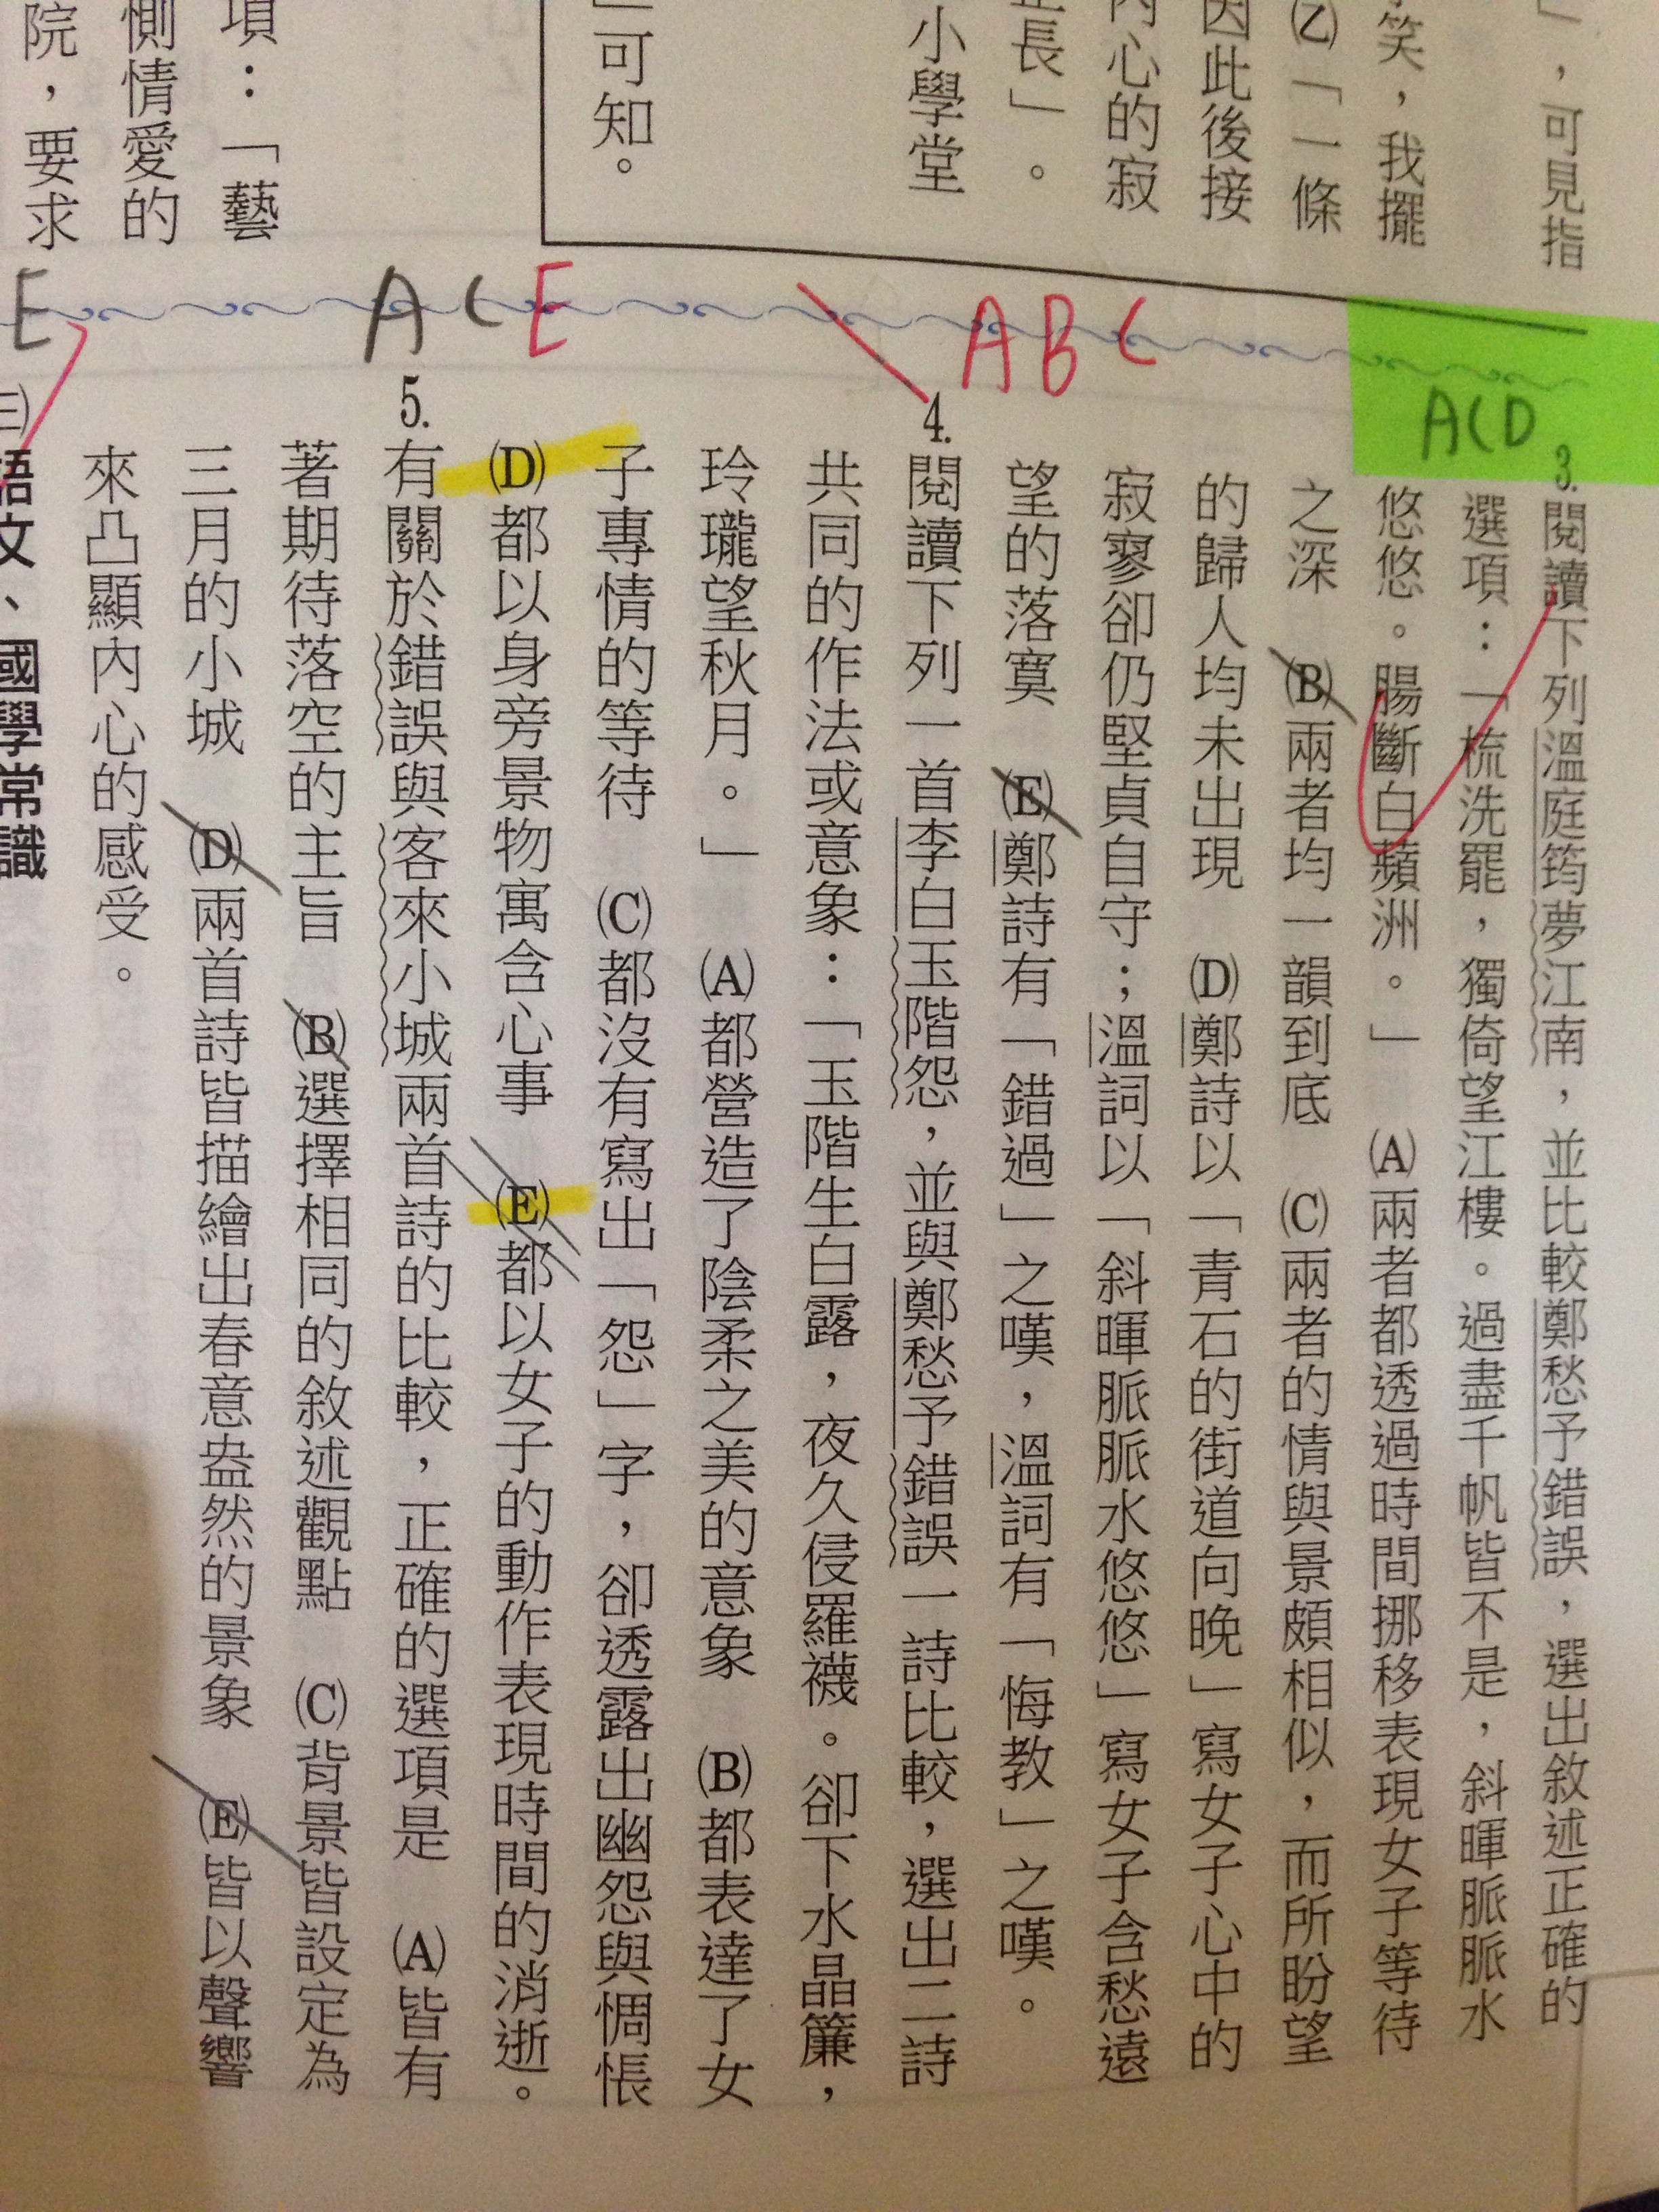 」，可見指
笑，我擺
(乙)「一條
因此後接
內心的寂
長」。
小學堂
」可知。
項：「藝
惻情愛的
院，要求
ACD
3.閱讀下列溫庭筠夢江南，並比較鄭愁予錯誤，選出敘述正確的
選項：「梳洗罷，獨倚望江樓。過盡千帆皆不是，斜暉脈脈水
悠悠。腸斷白蘋洲。」 (A)兩者都透過時間挪移表現女子等待
之深 (B)兩者均一韻到底 (C)兩者的情與景頗相似，而所盼望
的歸人均未出現 (D)鄭詩以「青石的街道向晚」寫女子心中的
寂寥卻仍堅貞自守；溫詞以「斜暉脈脈水悠悠」寫女子含愁遠
望的落寞 (E)鄭詩有「錯過」之嘆，溫詞有「悔教」之嘆。
ABC
4.閱讀下列一首李白玉階怨，並與鄭愁予錯誤一詩比較，選出二詩
共同的作法或意象：「玉階生白露，夜久侵羅襪。卻下水晶簾，
玲瓏望秋月。」 (A)都營造了陰柔之美的意象 (B)都表達了女
子專情的等待 (C)都沒有寫出「怨」字，卻透露出幽怨與惆悵
(D)都以身旁景物寓含心事 (E)都以女子的動作表現時間的消逝。
ACE
5.有關於錯誤與客來小城兩首詩的比較，正確的選項是 (A)皆有
著期待落空的主旨 (B)選擇相同的敘述觀點 (C)背景皆設定為
三月的小城 (D)兩首詩皆描繪出春意盎然的景象 (E)皆以聲響
來凸顯內心的感受。
E
語文、國學常識